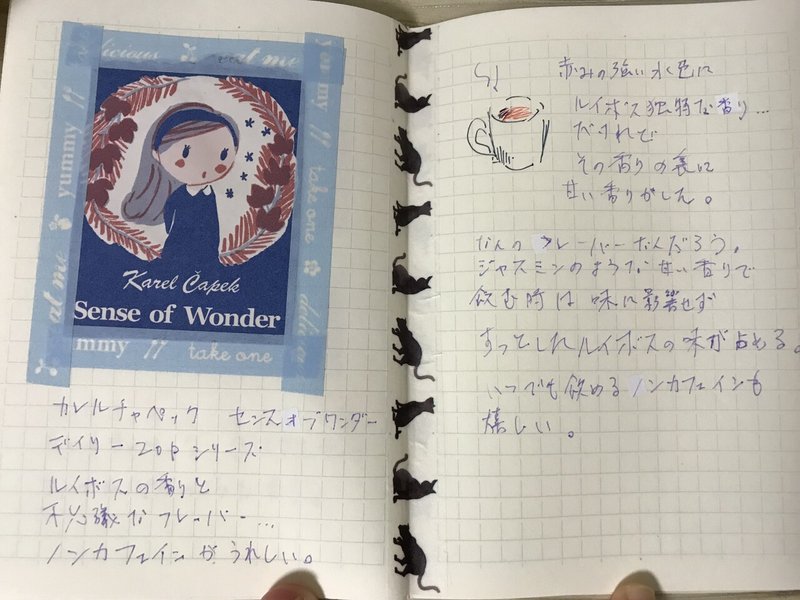 delicious
eat me
yummy
take one
yummy
eat me
take one
Karel Čapek
Sense of Wonder
yummy
take one
カレルチャペック センスオブワンダー
デイリー20Pシリーズ
ルイボスの香りと
不思議なフレーバー…
ノンカフェインがうれしい。
赤みの強い水色に
ルイボス独特な香り…
だけれど
その香りの裏に
甘い香りがした。
なんのフレーバーなんだろう。
ジャスミンのような甘い香りで
飲む時は味に影響せず
すっとしたルイボスの味が占める。
いつでも飲めるノンカフェインも
嬉しい。